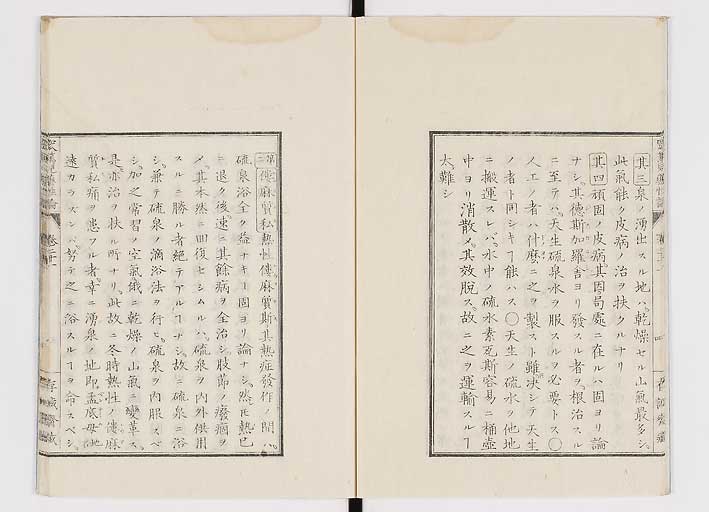 其三泉ノ湧出スル地ハ乾燥セル山氣最多シ
此氣能ク皮病ノ治ヲ扶クルナリ
其四頑固ノ皮病其因局處ニ在ルハ固ヨリ論
ナシ其徳斯加羅舎ヨリ發スル者ヲ根治スル
ニ至テハ天生硫泉水ヲ服スルヲ必要トス〇
人工ノ者ハ什麽ニ之ヲ製スト雖決シテ天生
ノ者ト同シキヿ能ハス〇天生ノ硫水ヲ他地
ニ搬運スレハ水中ノ硫水素瓦斯容易ニ桶壺
中ヨリ消散メ其效脱ス故ニ之ヲ運輸スルヿ
太難シ
第二僂麻質私熱性僂麻質斯其熱症發作ノ間ハ
硫泉浴全ク益ナキヿ固ヨリ論ナシ然𪜈熱已
ニ退ク後速ニ其餘病ヲ全治シ肢節ノ癈痼ヲ
メ其本然ニ回復セシムルハ硫泉ヲ内外供用
スルニ勝ル者絶テアルヿナシ故ニ硫泉ニ浴
シ兼テ硫泉ノ滴浴法ヲ行ヒ硫泉ヲ内服スベ
シ加之常習ノ空氣俄ニ乾燥ノ山氣ニ變革ス
是亦治ヲ扶ル所ナリ此故ニ冬時熱性ノ僂麻
質私痛ヲ患フル者幸ニ湧泉ノ地即孟底母地
遠カラズンバ努テ之ニ浴スルヿヲ命スベシ